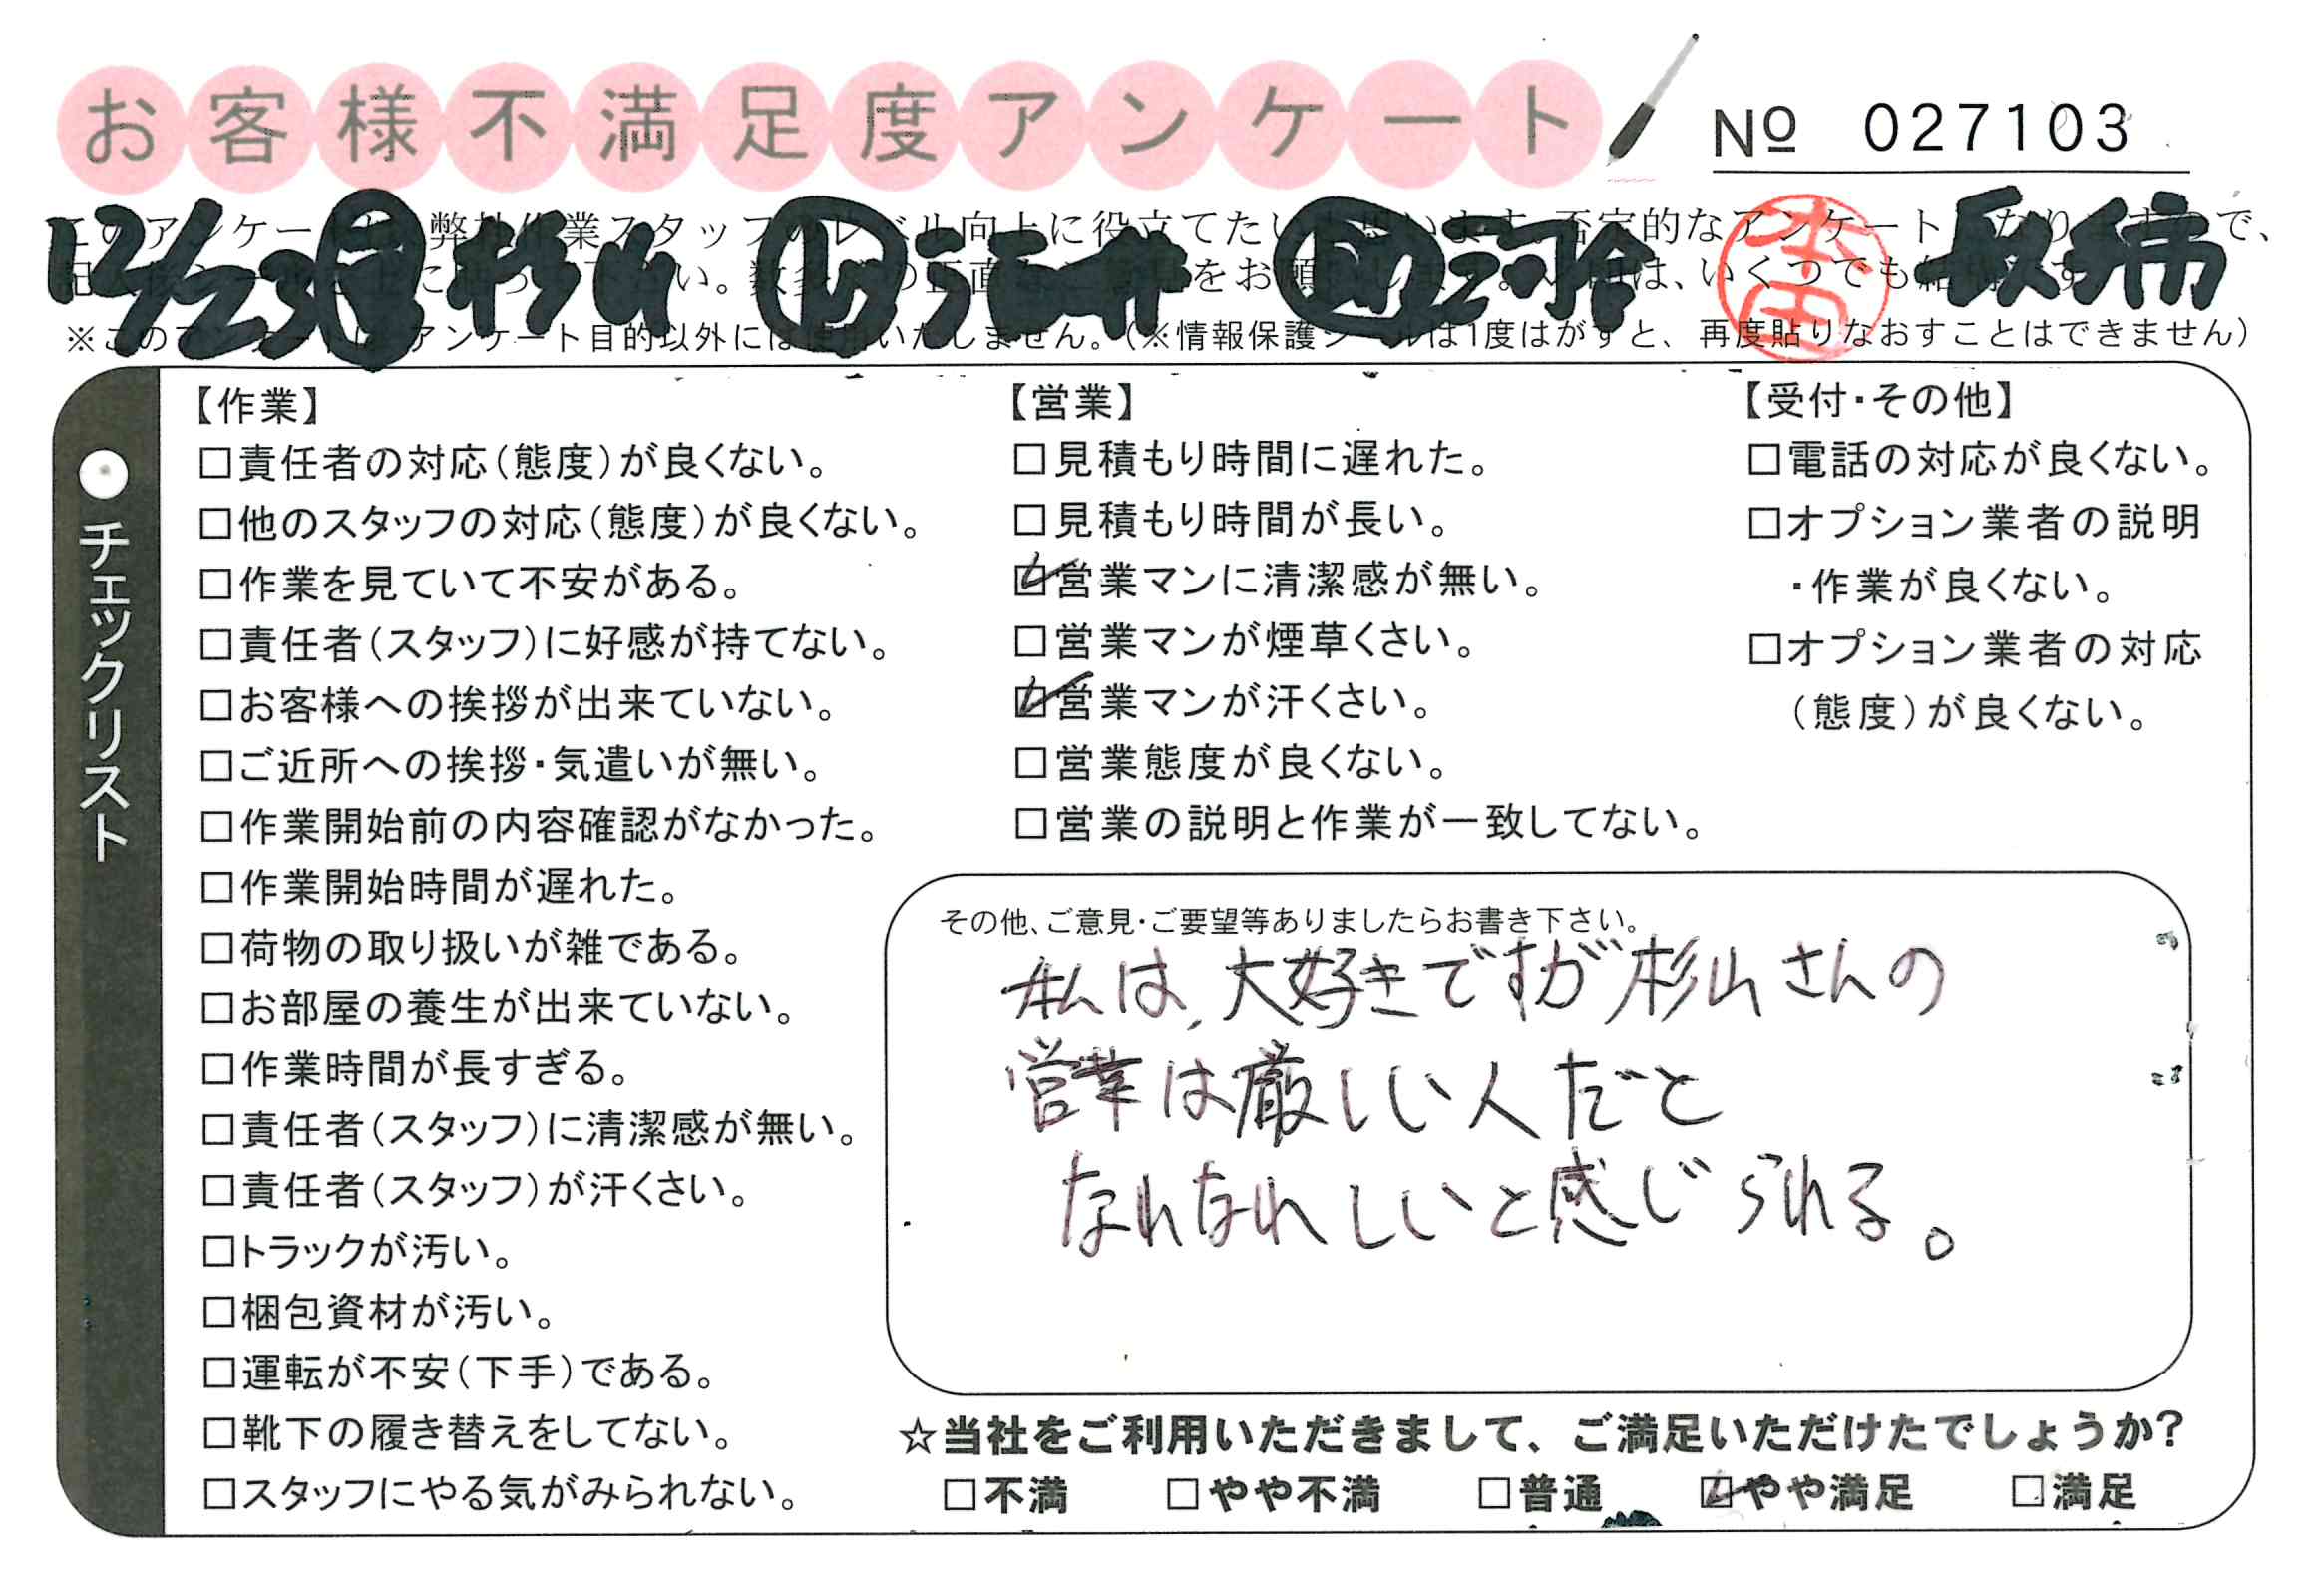 お客様不満足度アンケート
№ 027103
12/23 杉山
※このアンケートは、アンケート目的以外には使用いたしません。（※情報保護シールは1度はがすと、再度貼りなおすことはできません）
チェックリスト
【作業】
□責任者の対応（態度）が良くない。
□他のスタッフの対応（態度）が良くない。
□作業を見ていて不安がある。
□責任者（スタッフ）に好感が持てない。
□お客様への挨拶が出来ていない。
□ご近所への挨拶・気遣いが無い。
□作業開始前の内容確認がなかった。
□作業開始時間が遅れた。
□荷物の取り扱いが雑である。
□お部屋の養生が出来ていない。
□作業時間が長すぎる。
□責任者（スタッフ）に清潔感が無い。
□責任者（スタッフ）が汗くさい。
□トラックが汚い。
□梱包資材が汚い。
□運転が不安（下手）である。
□靴下の履き替えをしてない。
□スタッフにやる気がみられない。
【営業】
□見積もり時間に遅れた。
□見積もり時間が長い。
☑営業マンに清潔感が無い。
□営業マンが煙草くさい。
☑営業マンが汗くさい。
□営業態度が良くない。
□営業の説明と作業が一致してない。
【受付・その他】
□電話の対応が良くない。
□オプション業者の説明
・作業が良くない。
□オプション業者の対応
（態度）が良くない。
その他、ご意見・ご要望等ありましたらお書き下さい。
私は、大好きですが杉山さんの
営業は厳しい人だと
なれなれしいと感じられる。
☆当社をご利用いただきまして、ご満足いただけたでしょうか？
□不満 □やや不満 □普通 ☑やや満足 □満足